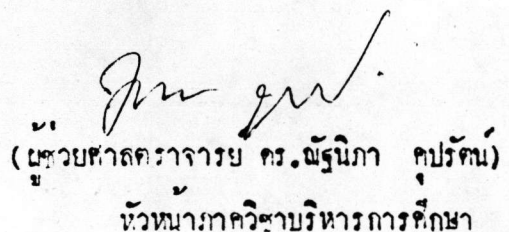 (ผู้ช่วยศาสตราจารย์ ดร.ณัฐนิภา คุปรัตน์)
หัวหน้าภาควิชาบริหารการศึกษา